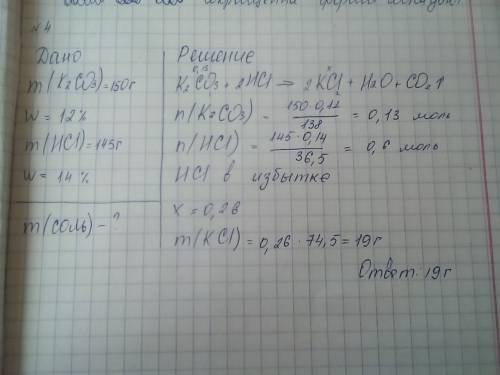 №4
Дано
m(K₂CO₃)=150г
W = 12%
m(HCl)=145г
W = 14%
m(соль) - ?
Решение
0,13 x
K₂CO₃ + 2HCl → 2KCl + H₂O + CO₂↑
2
n(K₂CO₃) = 150·0,12 / 138 = 0,13 моль
n(HCl) = 145·0,14 / 36,5 = 0,6 моль
HCl в избытке
X = 0,26
m(KCl) = 0,26 · 74,5 = 19г
Ответ: 19г